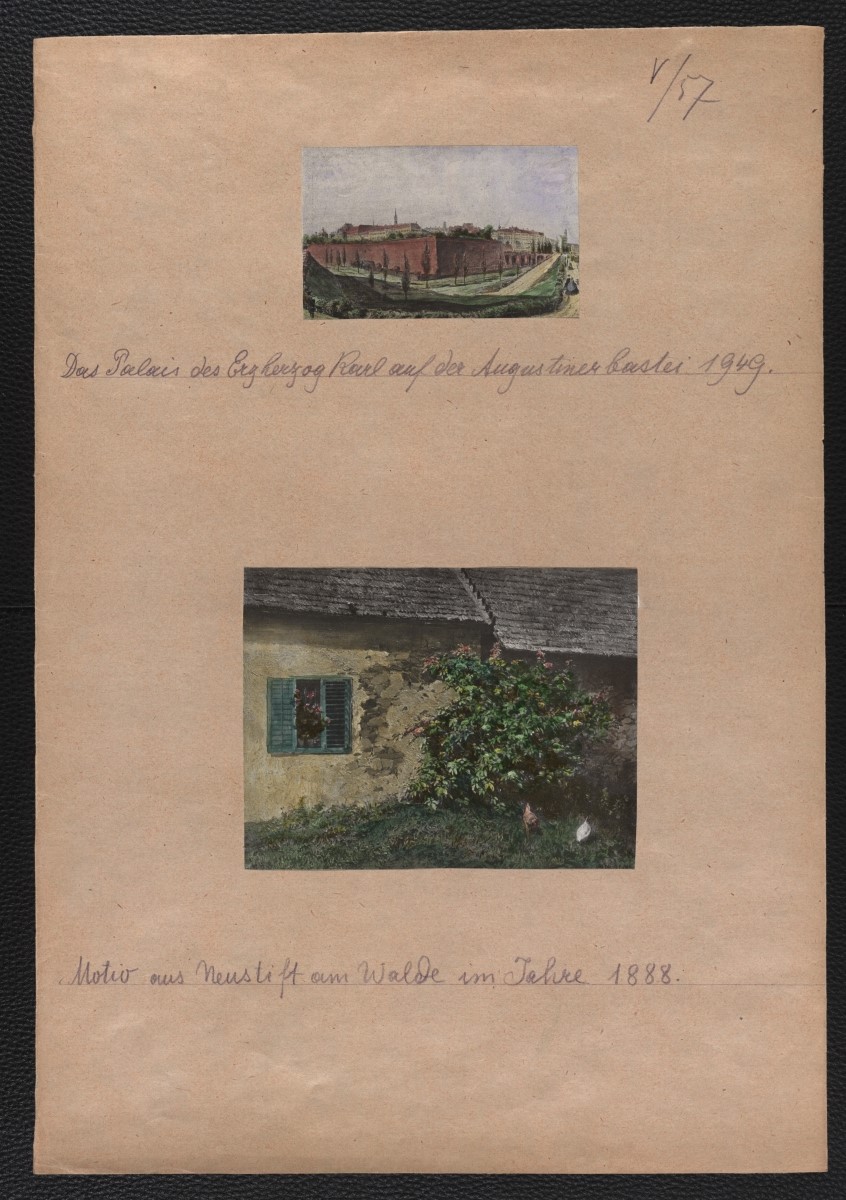 V/57
Das Palais des Erzherzog Karl auf der Augustinerbastei 1949.
Motiv aus Neustift am Walde im Jahre 1888.